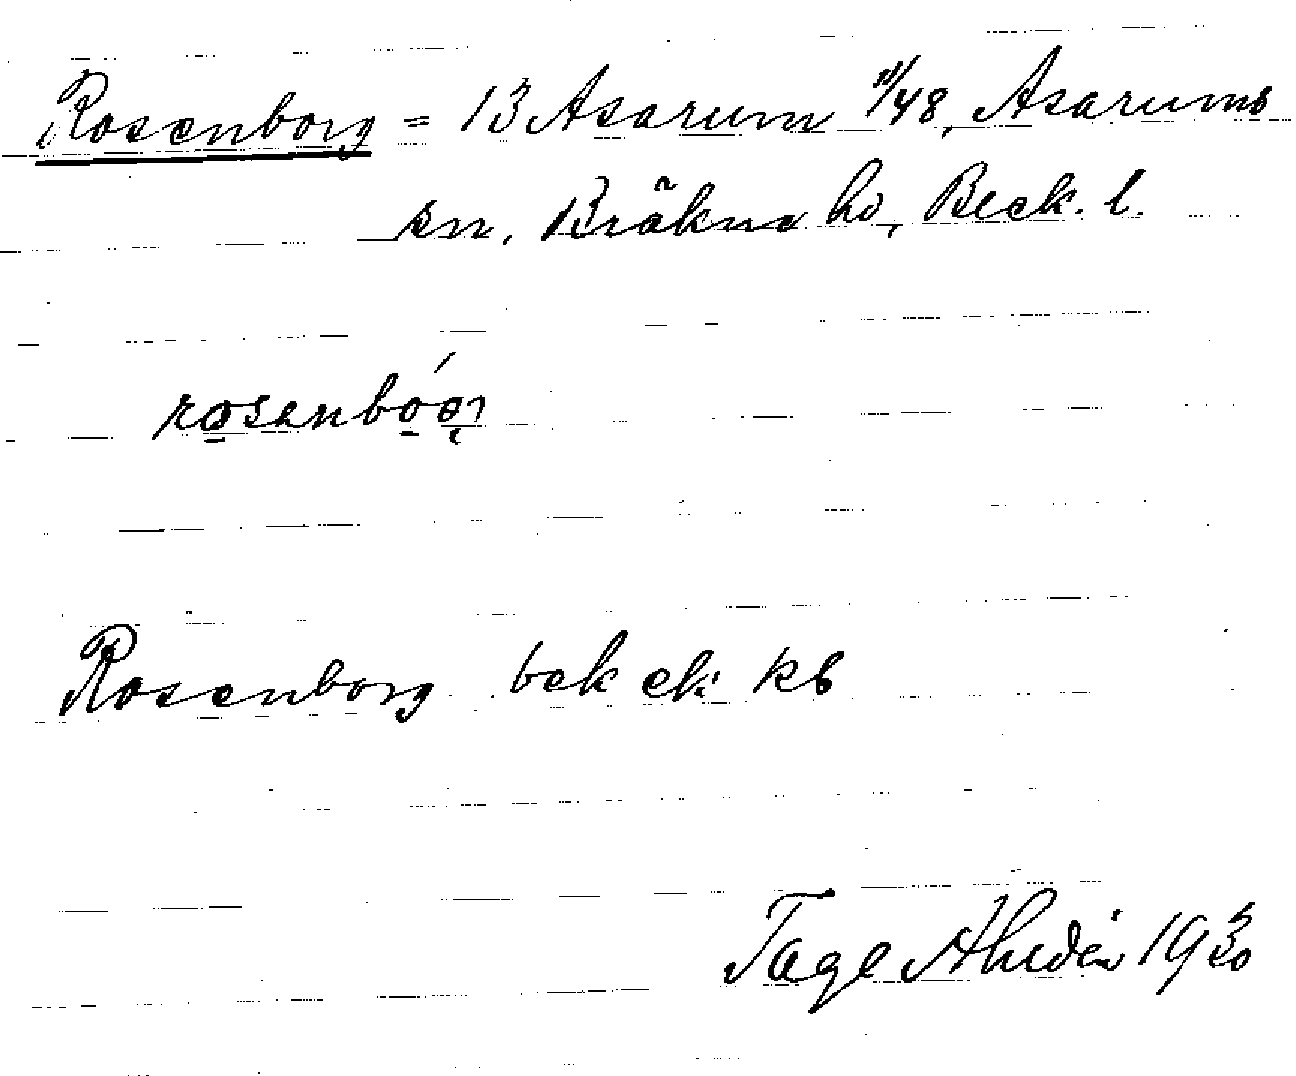 Rosenborg = 13 Asarum 11/48, Asarums
sn, Bräkne hd, Bleck. l.
Rosenborg bek ek kb
Tage Ahldén 1930